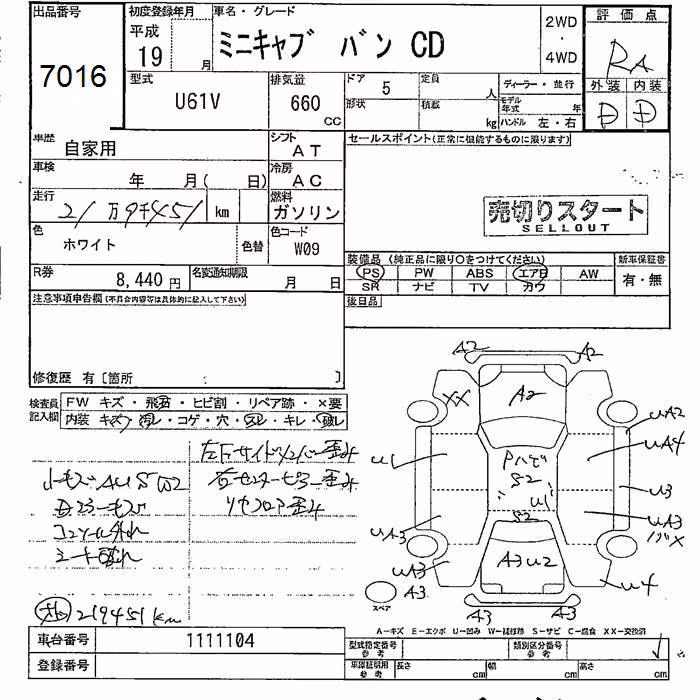 出品番号
7016
初度登録年月
平成
19 月
車名・グレード
ミニキャブ バン CD
2WD
・
4WD
評価点
RA
外装 内装
D D
型式
U61V
排気量
660
CC
ドア
5
形状
定員
人
積載
kg
ディーラー・並行
モデル年式 年
ハンドル 左・右
車歴
自家用
シフト
AT
車検
年 月( 日)
冷房
AC
走行
21万9千451 km
燃料
ガソリン
色
ホワイト
色替
色コード
W09
R券
8,440 円
名変通知期限
月 日
セールスポイント(正常に機能するものに限ります)
売切りスタート
SELLOUT
装備品 (純正品に限り○をつけてください)
新車保証書
PS PW ABS エアB AW
有・無
SR ナビ TV カワ
後日品
注意事項申告欄(不具合内容等は具体的に記入して下さい)
修復歴 有〔箇所 : 〕
検査員
記入欄
FW キズ・飛石・ヒビ割・リペア跡・×要
内装 キズ・汚レ・コゲ・穴・スレ・キレ・破レ
左右サイドメンバー歪み
小キズAUSW2
右センターピラー歪み
リヤフロア歪み
コンソール外れ
シート破れ
219451km
A2 A2
XX
A2
UA2
UA4
U1
U3
S2
U1
S2
UA3
UA3
UA3
A3
A3U2
U4
スペア
A3 A3
A-キズ E-エクボ U-凹み W-補修跡 S-サビ C-腐食 XX-交換済
車台番号
1111104
登録番号
型式指定番号
参考
類別区分番号
参考
車庫証明用
参考
長さ cm
幅 cm
高さ cm